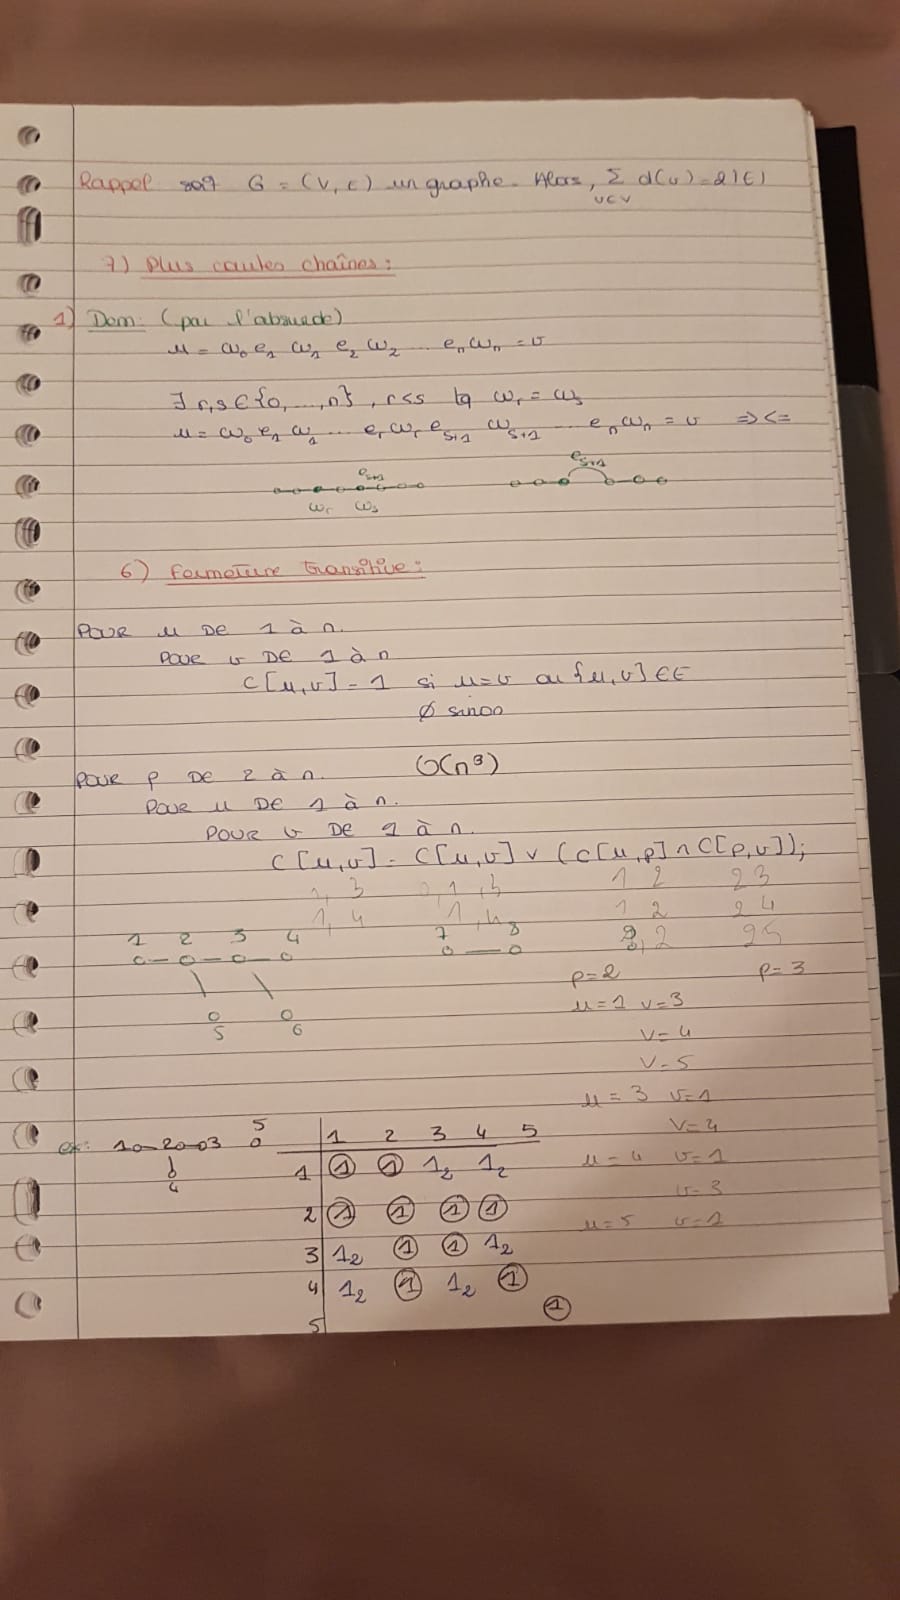 Rappel soit G = (V, E) un graphe. Alors, Σ d(v) = 2|E|
v∈V
7) Plus courtes chaînes :
1) Dem: (par l'absurde)
u = w₀ e₁ w₁ e₂ w₂ ... eₙ wₙ = v
∃ r,s ∈ {0, ..., n}, r<s tq wᵣ = wₛ
u = w₀ e₁ w₁ ... eᵣ wᵣ eₛ₊₁ wₛ₊₁ ... eₙ wₙ = v => <=
eₛ₊₁ eₛ₊₁
wᵣ wₛ
6) Fermeture transitive :
POUR u DE 1 à n.
POUR v DE 1 à n
C[u,v] = 1 si u=v ou {u,v} ∈ E
Ø sinon
POUR p DE 2 à n. O(n³)
POUR u DE 1 à n.
POUR v DE 1 à n.
C[u,v] = C[u,v] ∨ (C[u,p] ∧ C[p,v]);
1, 3 1, 3 1 2 2 3
1, 4 1, 4 1 2 2 4
1 2 3 4 7 8 2 25
5 6
p=2 p=3
u=1 v=3
v=4
v=5
u=3 v=1
v=4
u=4 v=1
v=3
u=5 v=1
ex: 1 2 3 5
4
1 2 3 4 5
1 1 1 1₂ 1₂
2 1 1 1 1
3 1₂ 1 1 1₂
4 1₂ 1 1₂ 1
5 1